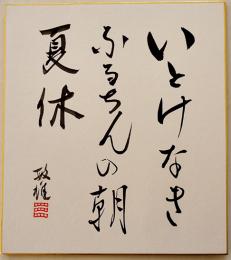 いとけなき
ふるちんの朝
夏休
敏雄